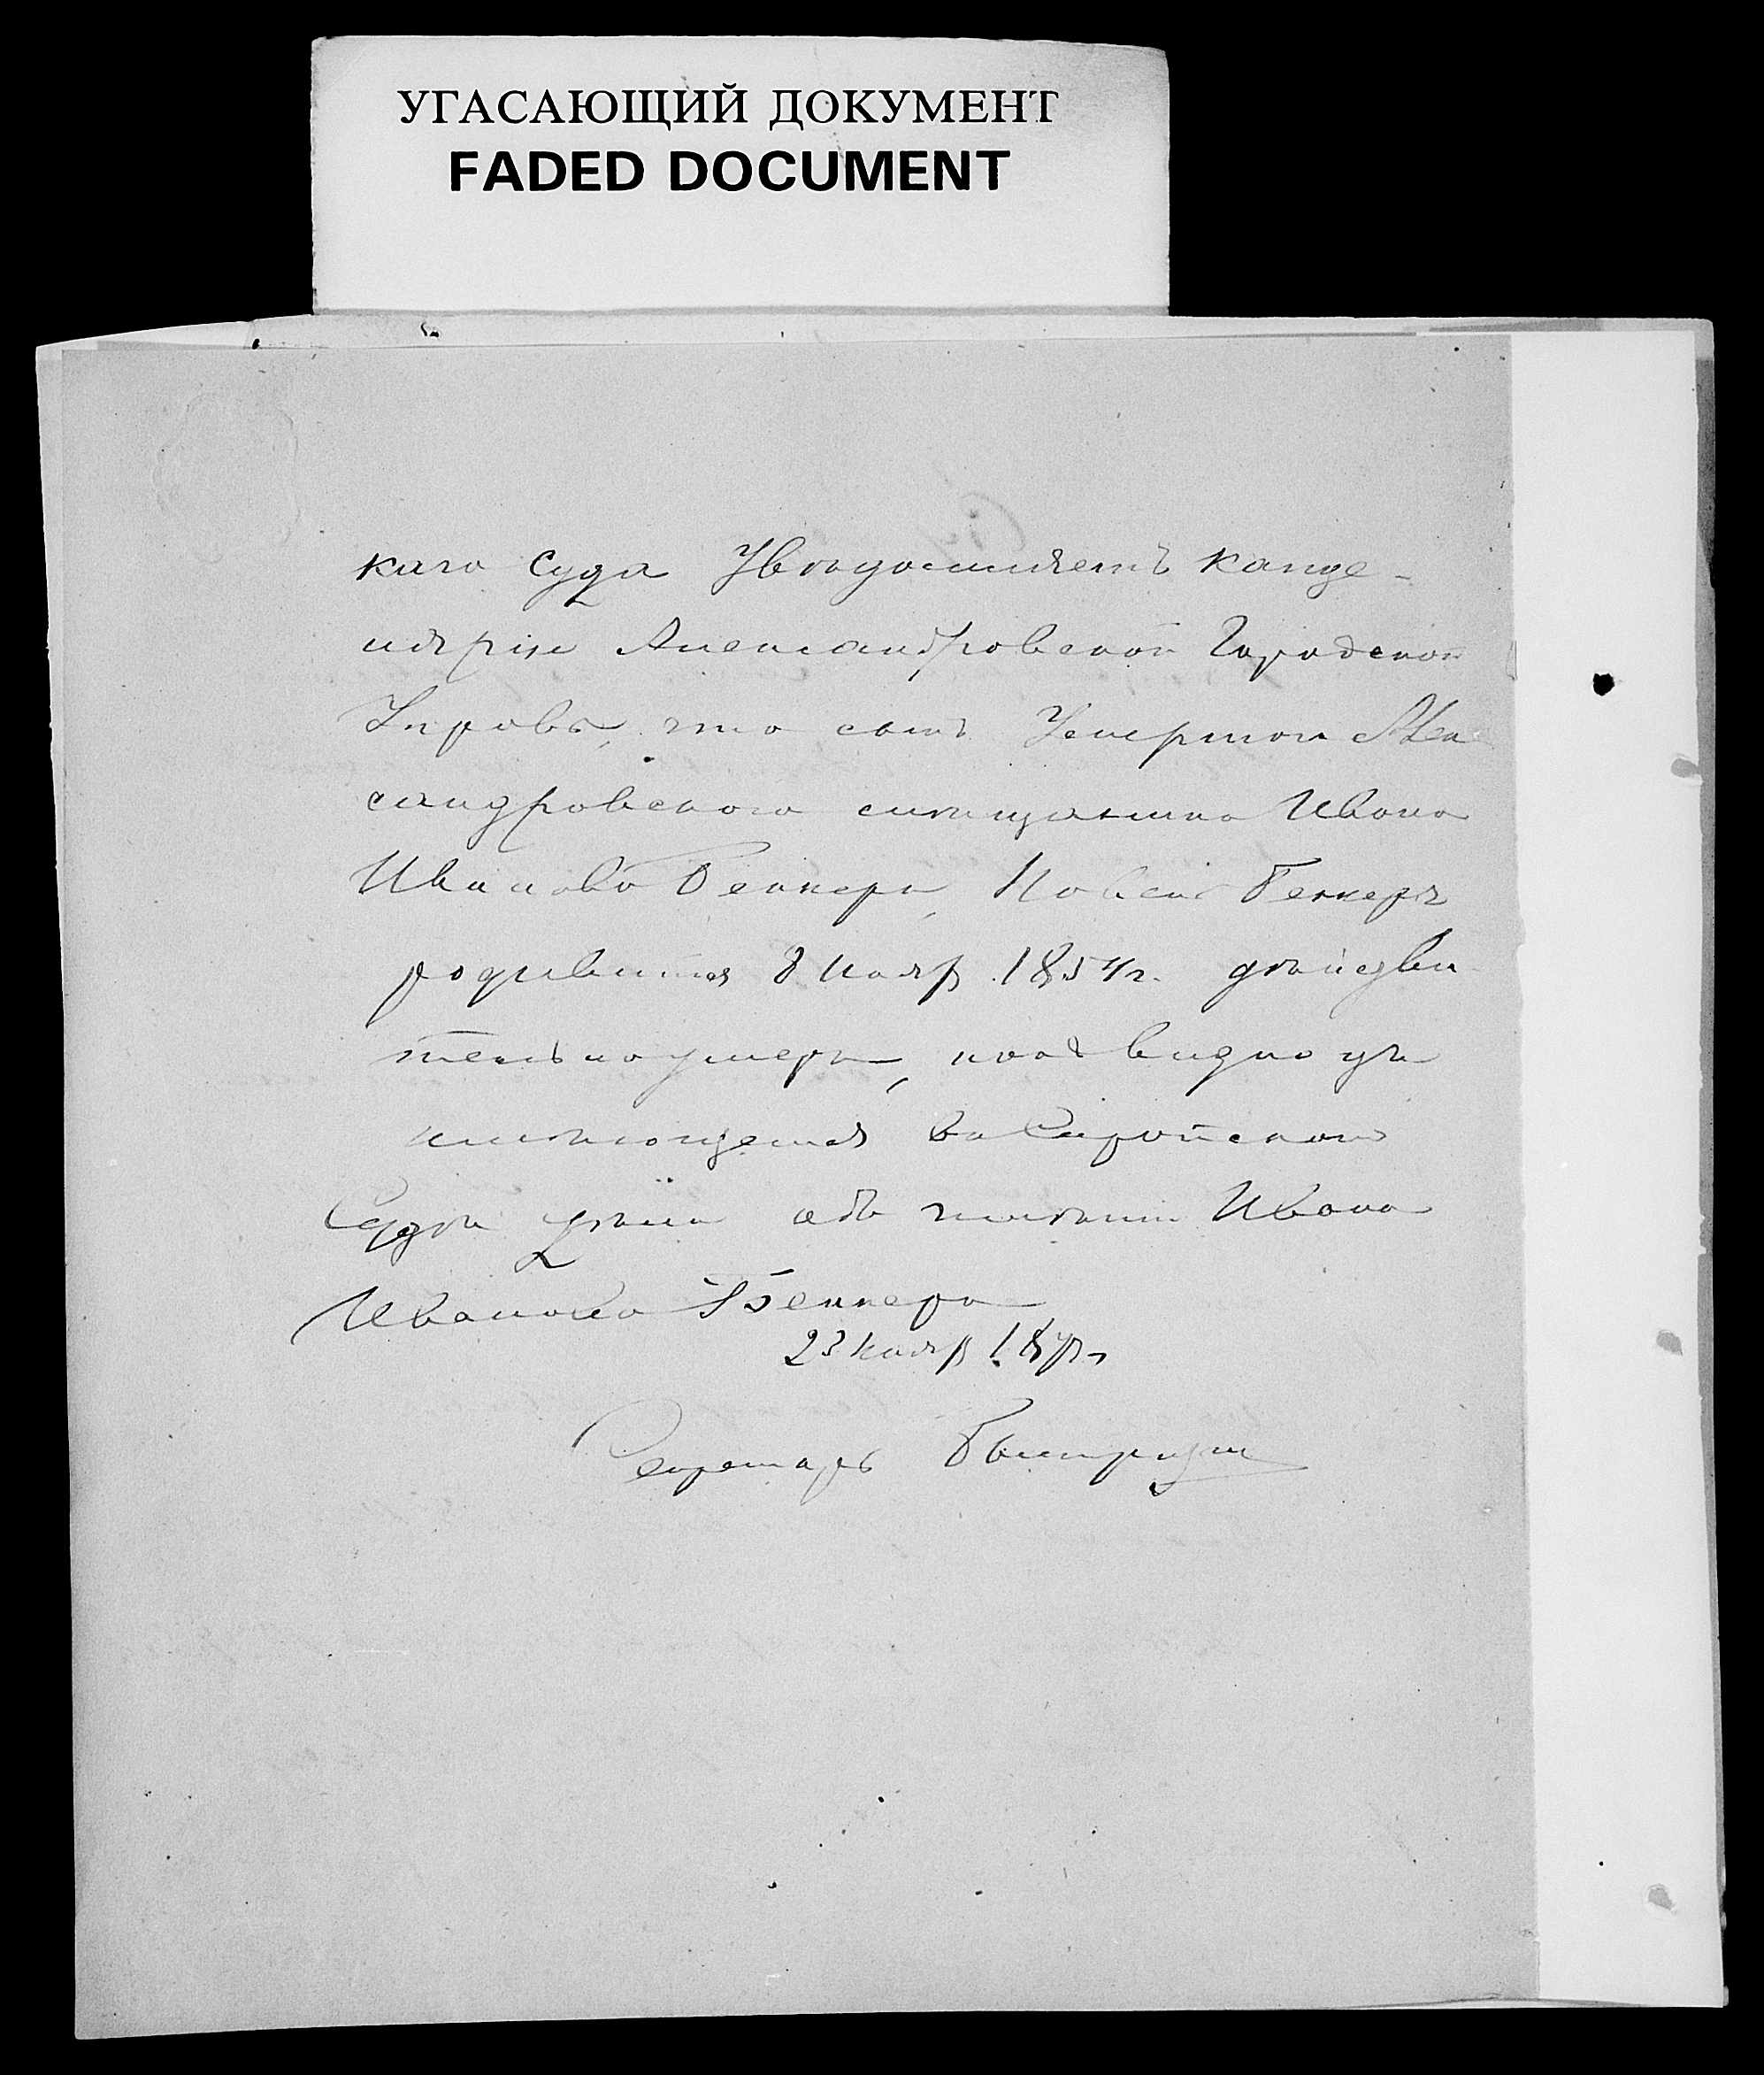 УГАСАЮЩИЙ ДОКУМЕНТ
FADED DOCUMENT
каго Суда Увѣдомляетъ канце-
лярію Александровской Городской
Управы, что сынъ Умершаго Алек
сандровскаго мѣщанина Ивана
Иванова Беккера, Беккеръ
родившійся 8 Нояб 1854 г. дѣйстви
тельно умеръ, какъ видно изъ
имѣющегося въ Сиротскомъ
Судѣ дѣла объ имѣніи Ивана
Иванова Беккера
23 Нояб 187
Секретарь